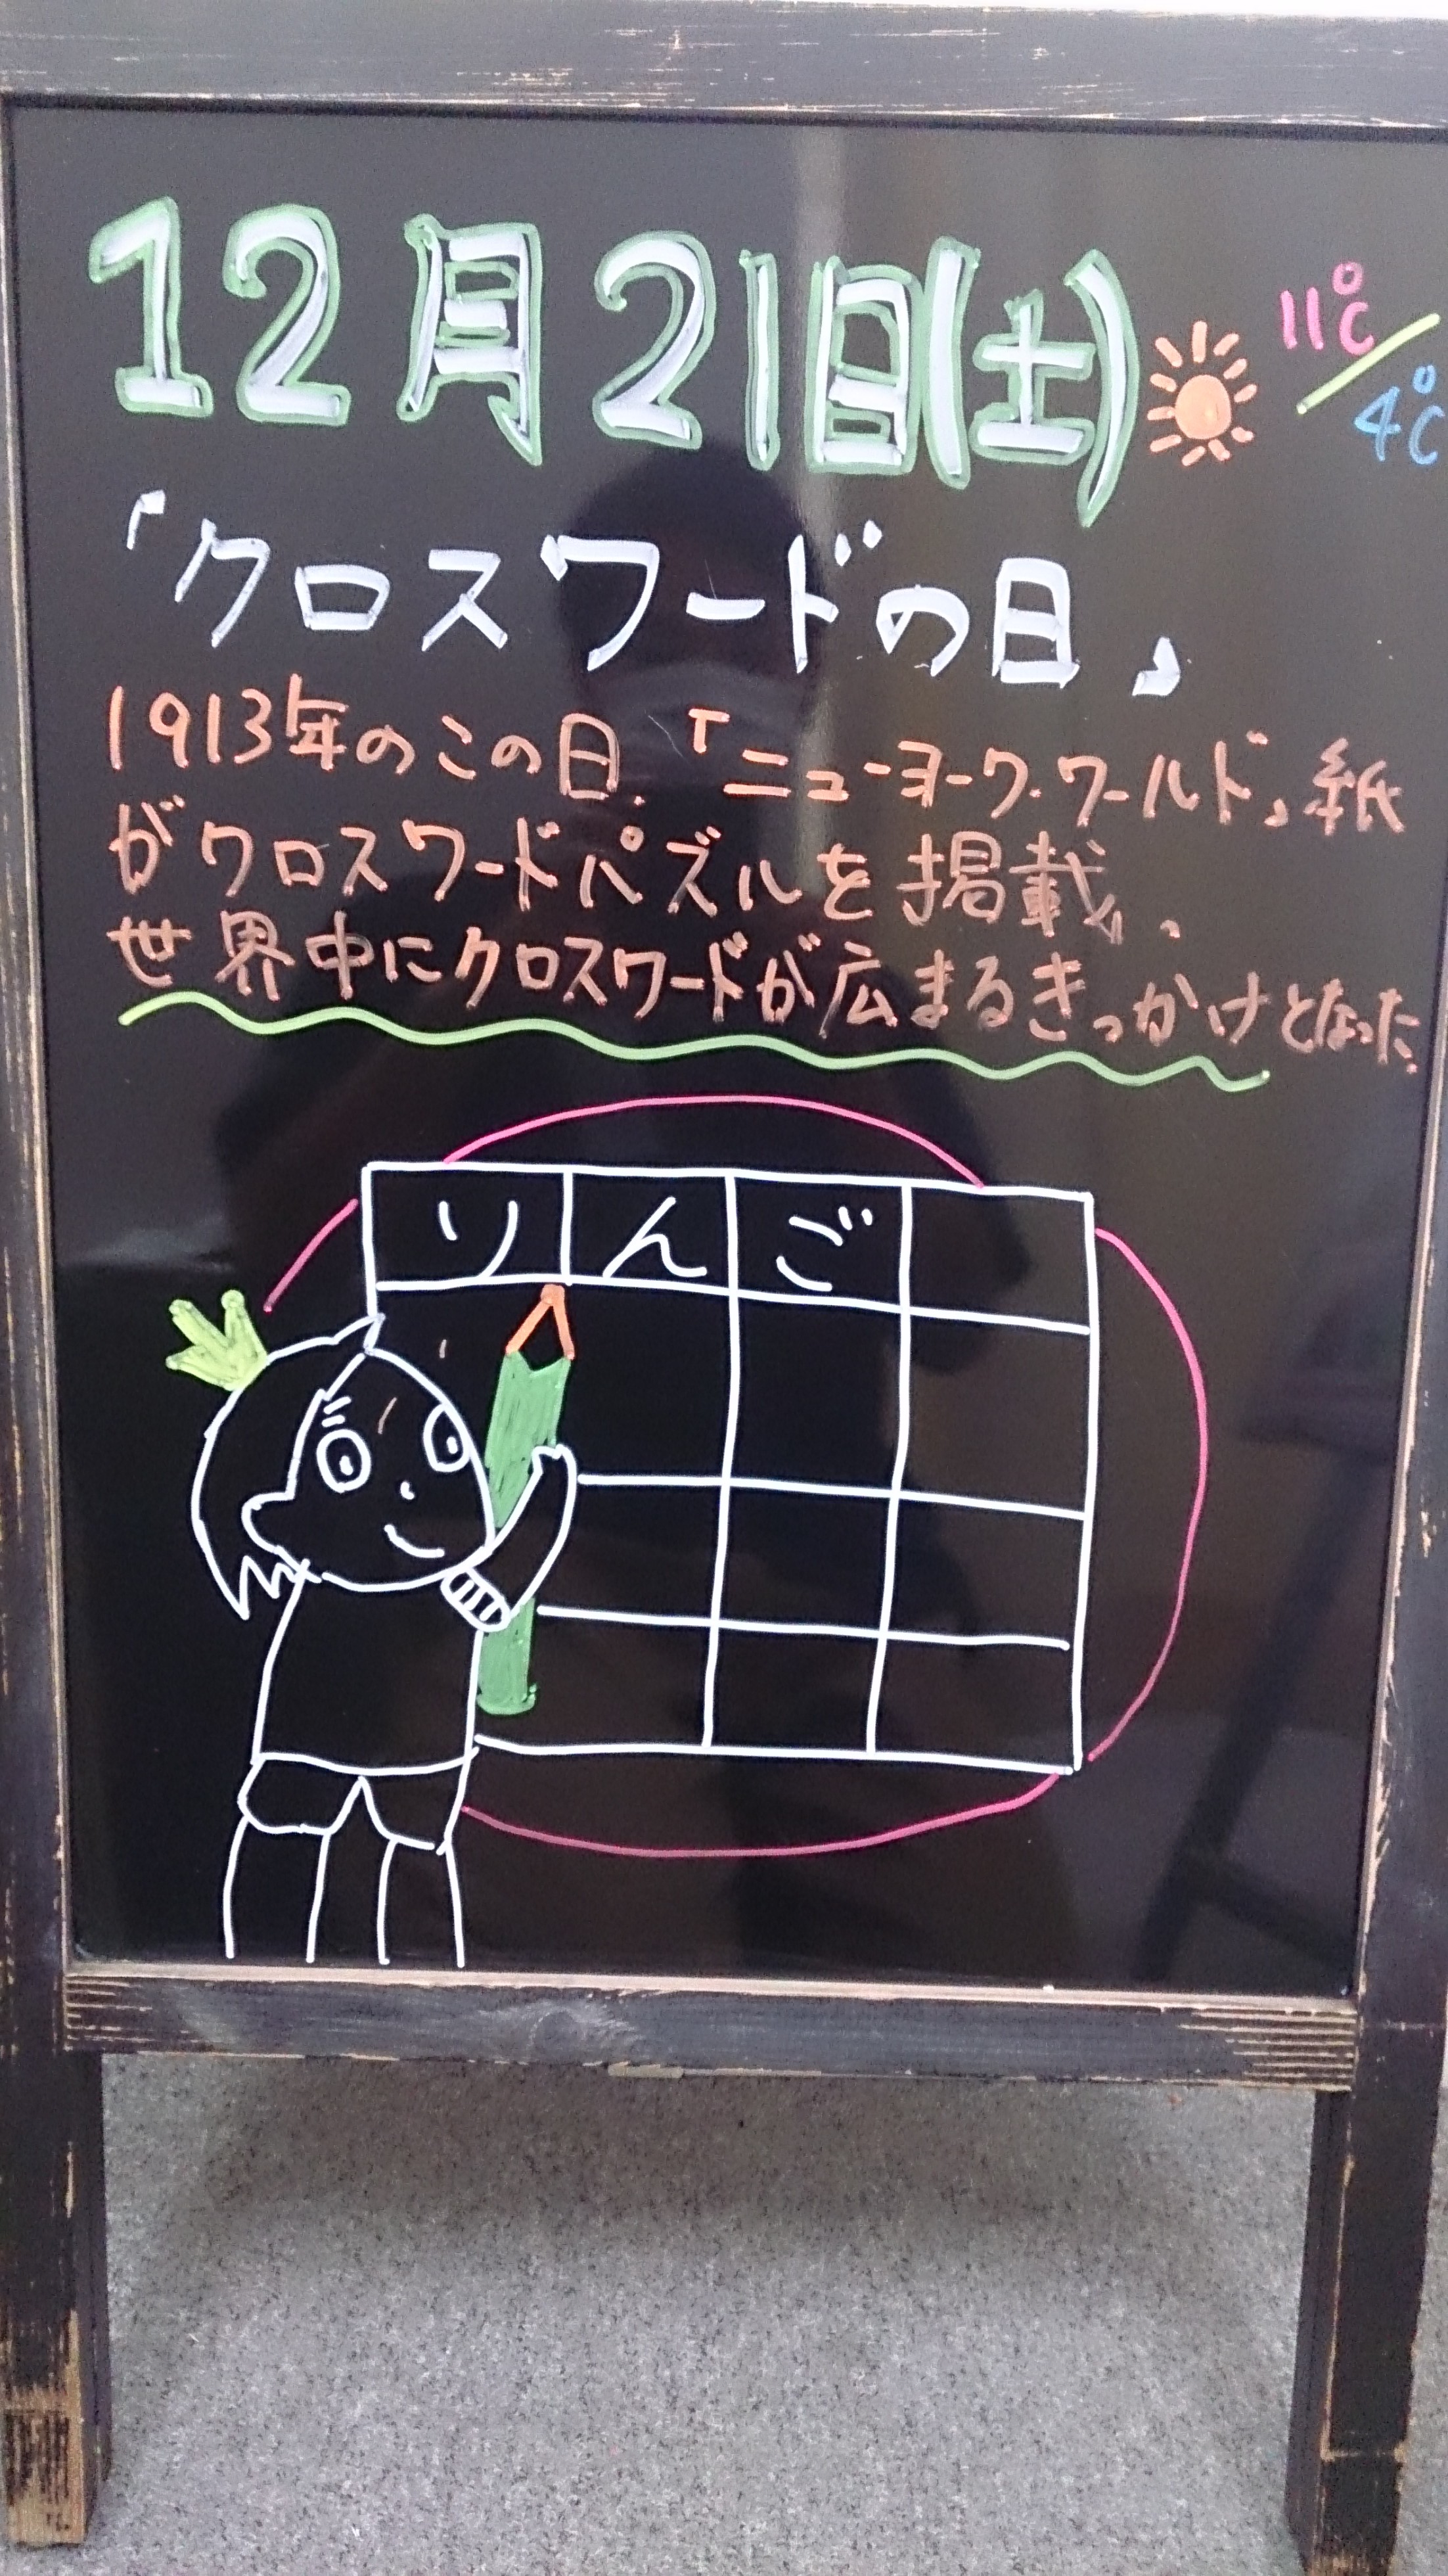 12月21日(土) 11℃/4℃
「クロスワードの日」
1913年のこの日、「ニューヨーク・ワールド」紙
がクロスワードパズルを掲載、
世界中にクロスワードが広まるきっかけとなった。
りんご